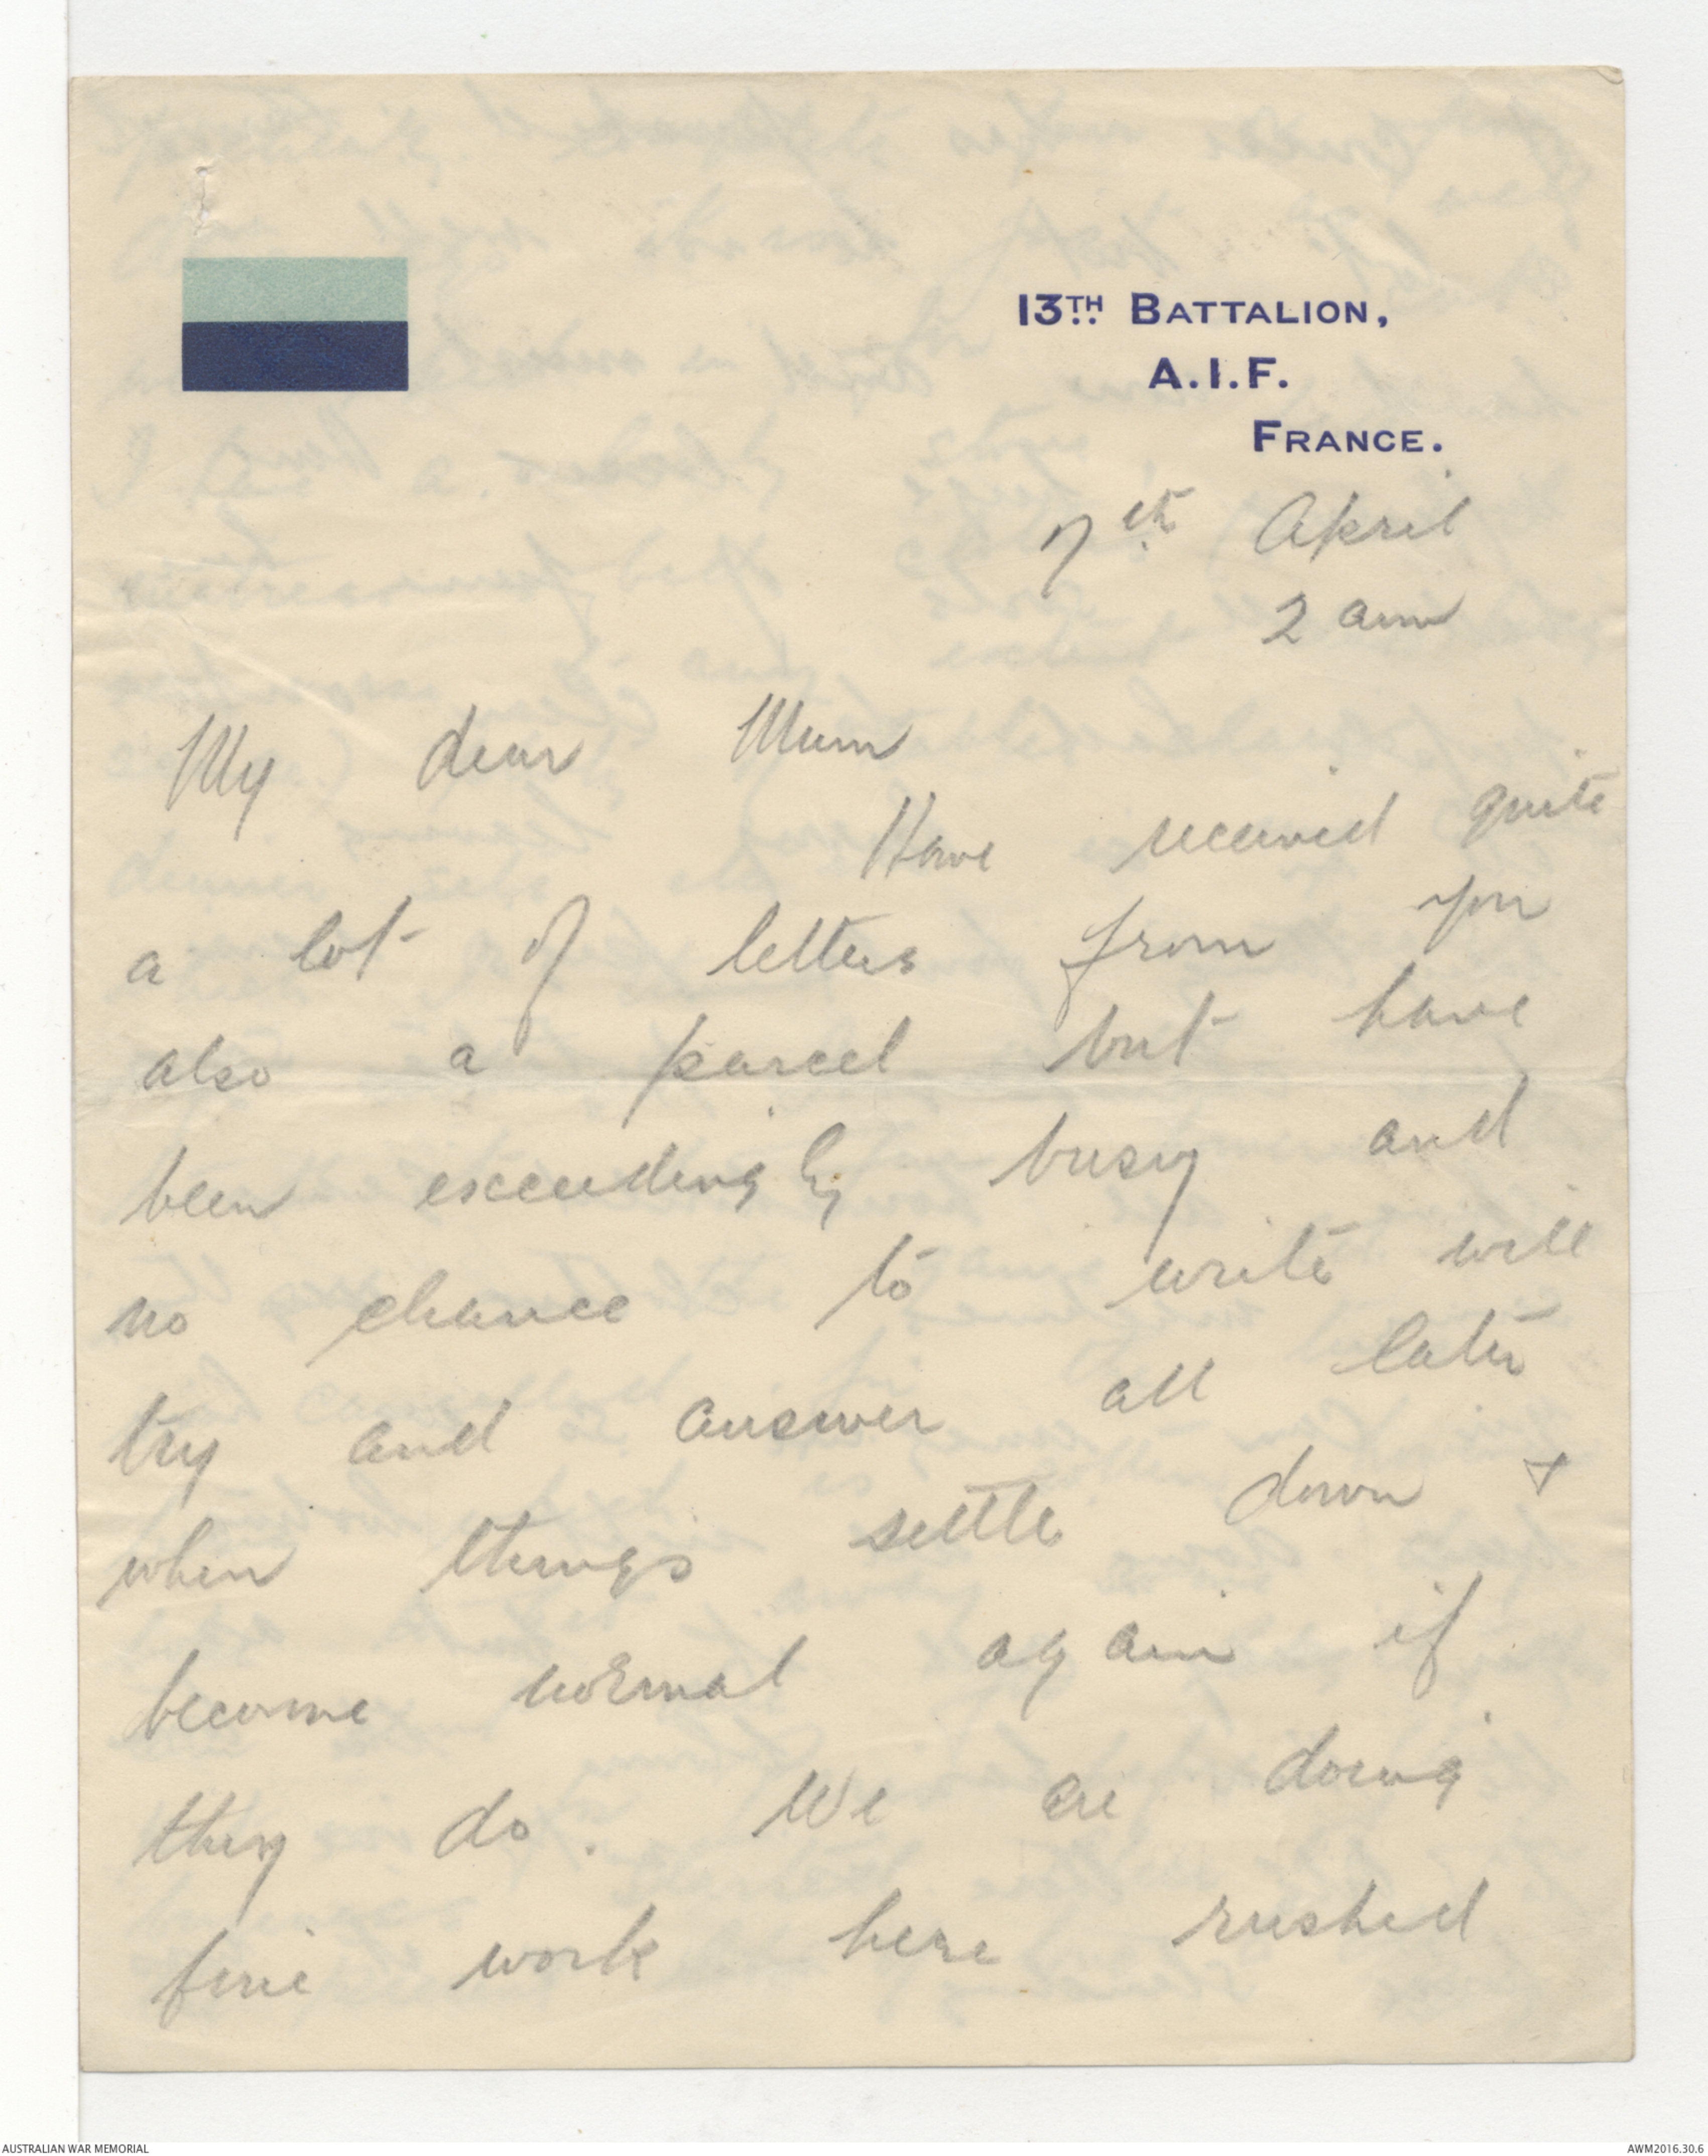 13TH BATTALION,
A.I.F.
FRANCE.
7th April
2 am
My dear Mum
Have received quite
a lot of letters from you
also a parcel but have
been exceedingly busy and
no chance to write will
try and answer all later
when things settle down &
become normal again if
they do. We are doing
fine work here rushed
AUSTRALIAN WAR MEMORIAL
AWM2016.30.6